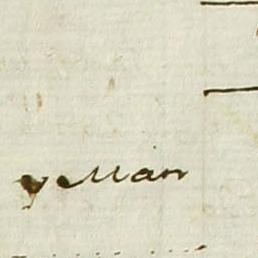 y Man